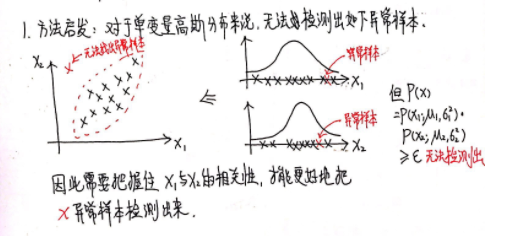 1. 方法启发：对于单变量高斯分布来说，无法检测出如下异常样本．
X₂
无法找出异常样本
X₁
⇐
异常样本
X₁
异常样本
X₂
但 P(x)
=P(x₁;μ₁,σ₁²)·
P(x₂;μ₂,σ₂²)
≥ε 无法检测出
因此需要把握住 X₁与X₂的相关性，才能更好地把
X 异常样本检测出来．